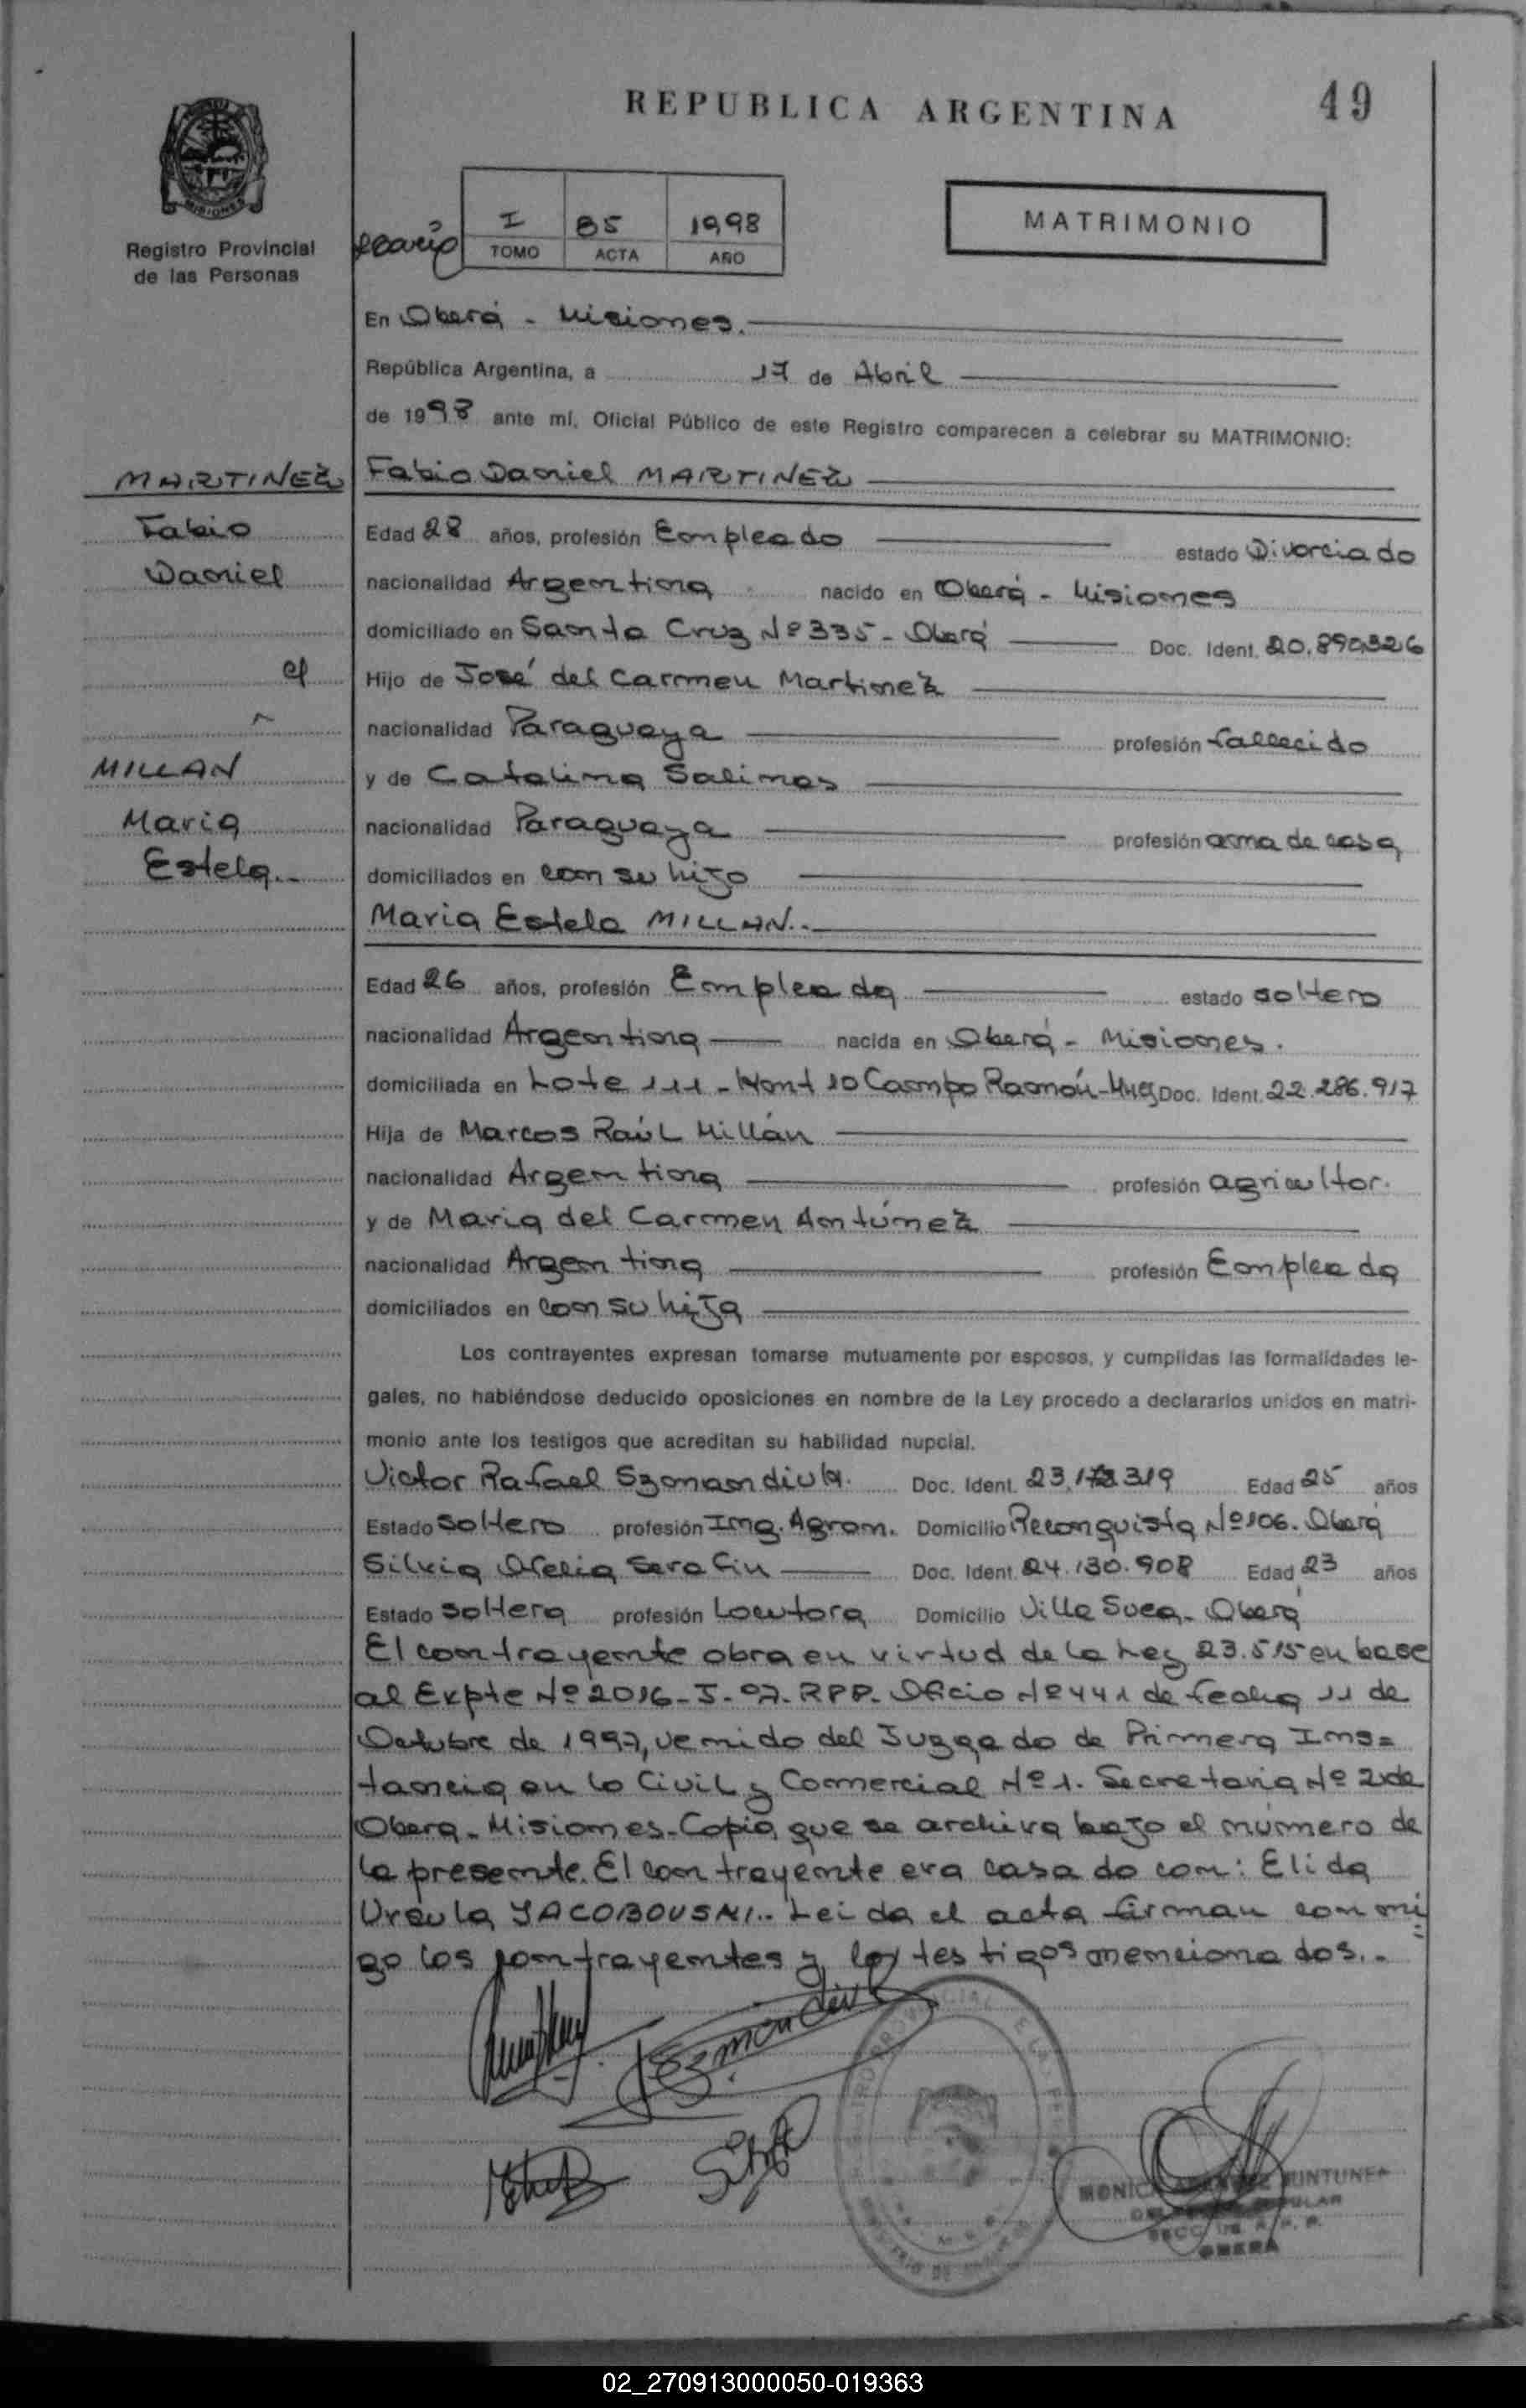 REPUBLICA ARGENTINA
49
MISIONES
Registro Provincial
de las Personas
I 85 1998
TOMO ACTA AÑO
MATRIMONIO
En Oberá - Misiones.
República Argentina, a 17 de Abril
de 1998 ante mí, Oficial Público de este Registro comparecen a celebrar su MATRIMONIO:
MARTINEZ
Fabio
Daniel
MILLAN
Maria
Estela.-
Fabio Daniel MARTINEZ
Edad 28 años, profesión Empleado estado Divorciado
nacionalidad Argentina nacido en Oberá - Misiones
domiciliado en Santa Cruz Nº 335 - Oberá Doc. Ident. 20.890.326
Hijo de José del Carmen Martinez
nacionalidad Paraguaya profesión fallecido
y de Catalina Salinas
nacionalidad Paraguaya profesión ama de casa
domiciliados en con su hijo
Maria Estela MILLAN.-
Edad 26 años, profesión Empleada estado soltero
nacionalidad Argentina nacida en Oberá - Misiones.
domiciliada en Lote 111 - Campo Ramón Doc. Ident. 22.286.917
Hija de Marcos Raúl Millán
nacionalidad Argentina profesión agricultor.
y de Maria del Carmen Antúnez
nacionalidad Argentina profesión Empleada
domiciliados en con su hija
Los contrayentes expresan tomarse mutuamente por esposos, y cumplidas las formalidades le-
gales, no habiéndose deducido oposiciones en nombre de la Ley procedo a declararlos unidos en matri-
monio ante los testigos que acreditan su habilidad nupcial.
Victor Rafael Doc. Ident. Edad 25 años
Estado Soltero profesión Ing. Agron. Domicilio Reconquista Nº 106. Oberá
Silvia Ofelia Serafin Doc. Ident. 24.130.908 Edad 23 años
Estado Soltera profesión Locutora Domicilio Villa Sueca - Oberá
El contrayente obra en virtud de la Ley 23.515 en base
al Expte Nº 2016-J-97. RPP. Oficio Nº 441 de fecha 11 de
Octubre de 1997, venido del Juzgado de Primera Ins=
tancia en lo Civil y Comercial Nº 1. Secretaria Nº 2 de
Obera - Misiones - Copia que se archiva bajo el número de
la presente. El contrayente era casado con: Elida
Ursula YACOBOUSKI.- Leida el acta firman con mi=
go los contrayentes y los testigos mencionados.-
OBERA
02_270913000050-019363